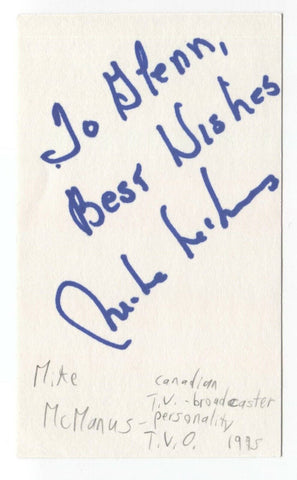 To Glenn,
Best Wishes
Mike McManus
Mike
McManus -
canadian
T.V. - broadcaster
personality
T.V.O. 1985